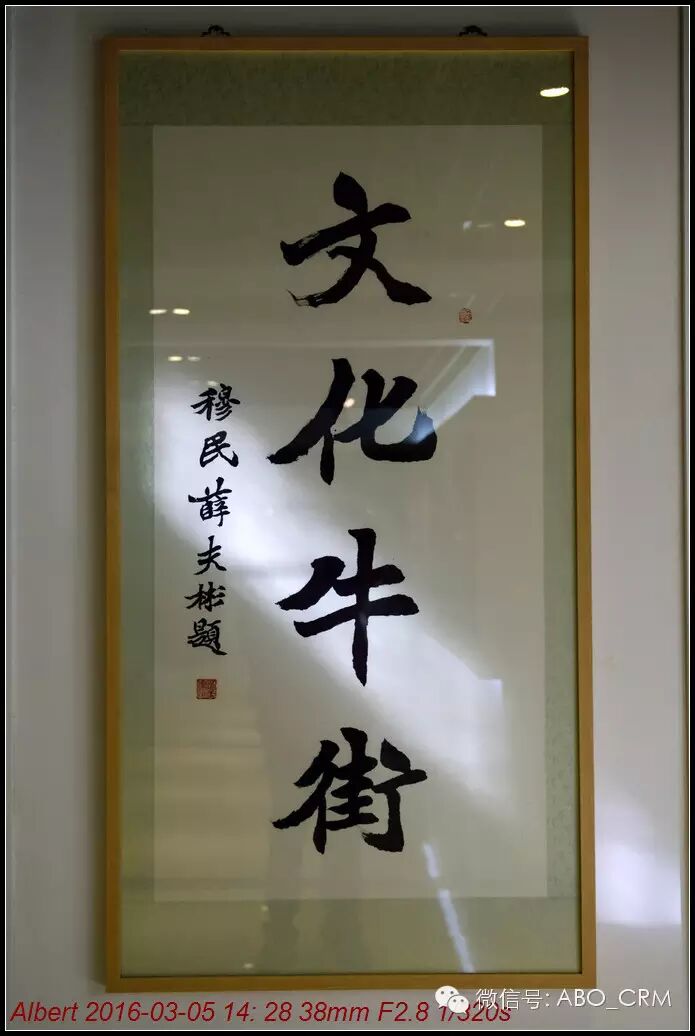 文化牛街
穆民薛夫彬题
微信号: ABO_CRM
Albert 2016-03-05 14: 28 38mm F2.8 1/320s